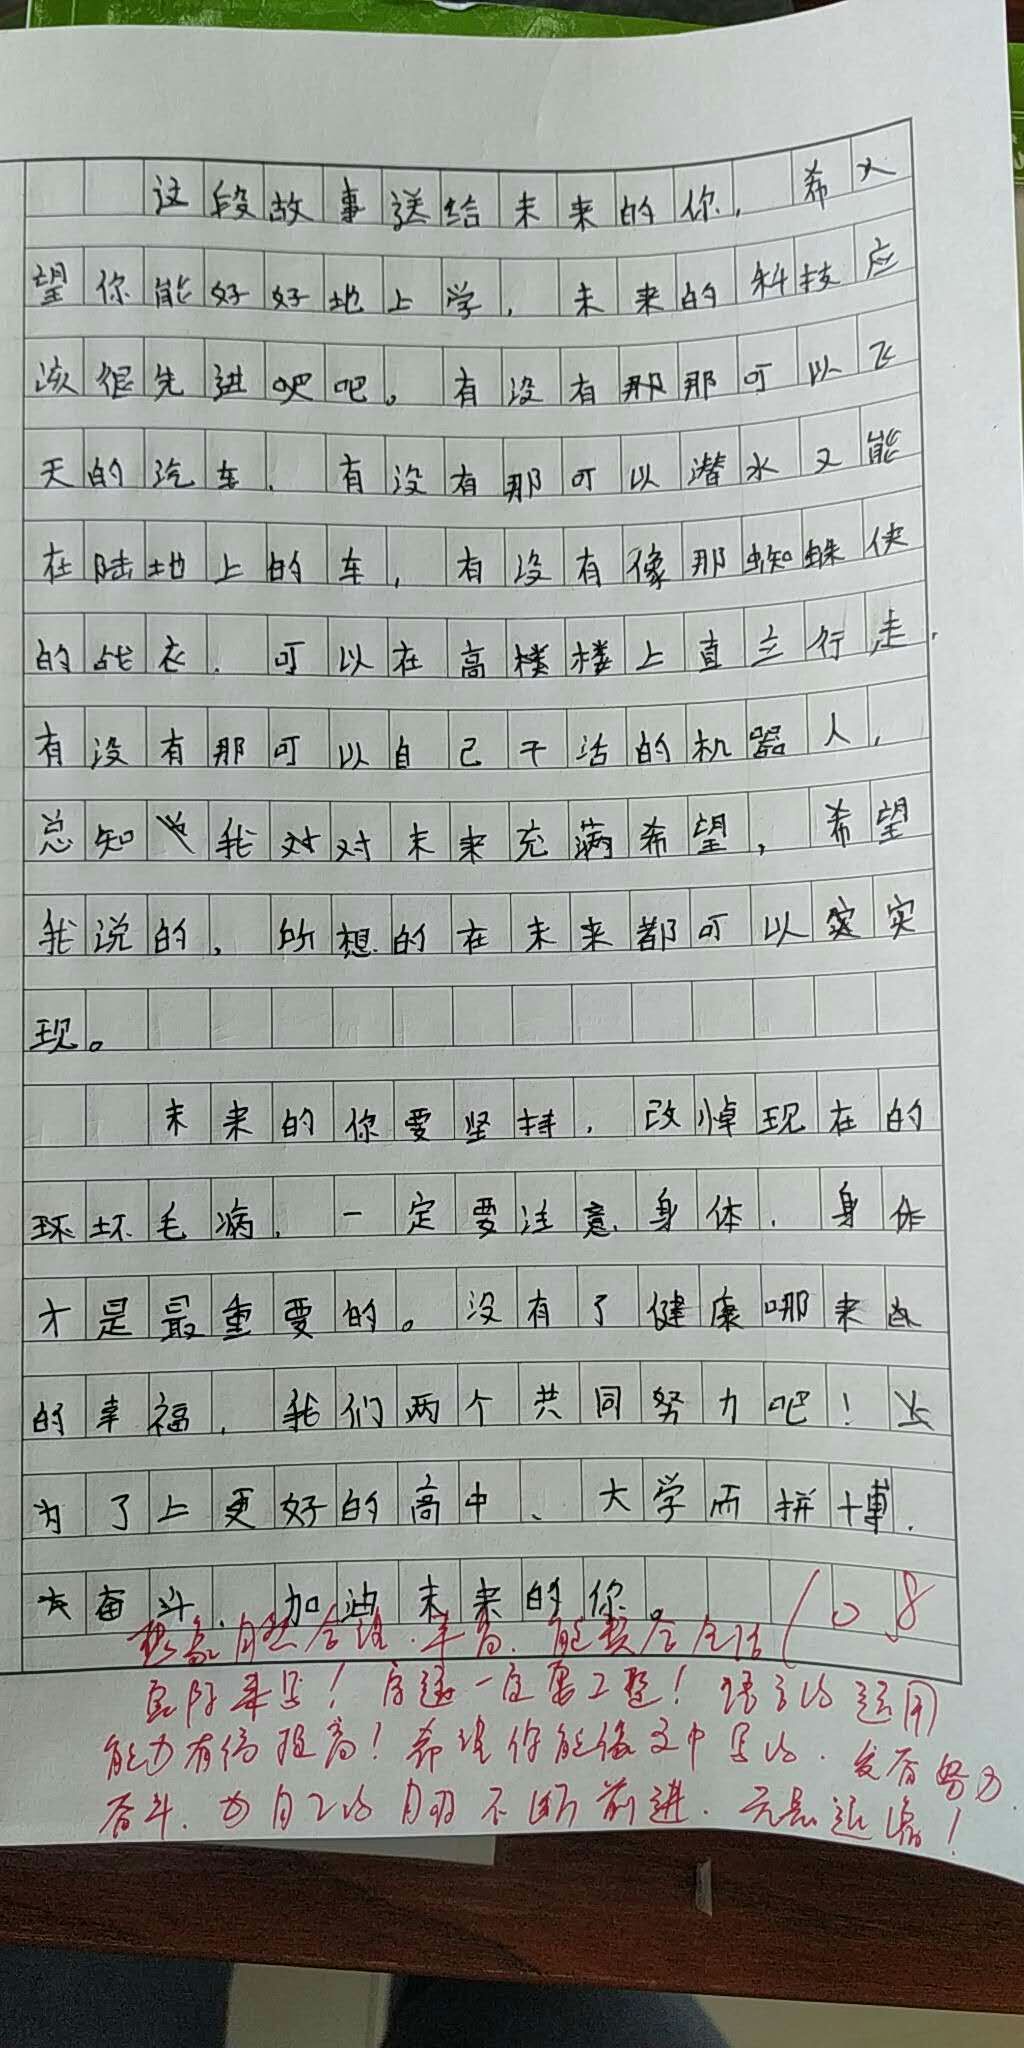 这段故事送给未来的你，希
望你能好好地上学，未来的科技应
该很先进吧吧。有没有那那可以飞
天的汽车、有没有那可以潜水又能
在陆地上的车，有没有像那蜘蛛侠
的战衣、可以在高楼楼上直立行走、
有没有那可以自己干活的机器人，
总知 我对对未来充满希望，希望
我说的，所想的在未来都可以实实
现。
未来的你要坚持，改悼现在的
环坏毛病，一定要注意身体，身体
才是最重要的。没有了健康哪来
的幸福，我们两个共同努力吧！
为了上更好的高中、大学而拼博、
奋斗、加油未来的你。
108
想象自然合理、丰富、能契合生活
实际来写！字迹一定要工整！语言的运用
能力有待提高！希望你能像文中写的、发奋努力
奋斗、为自己的 不断前进、